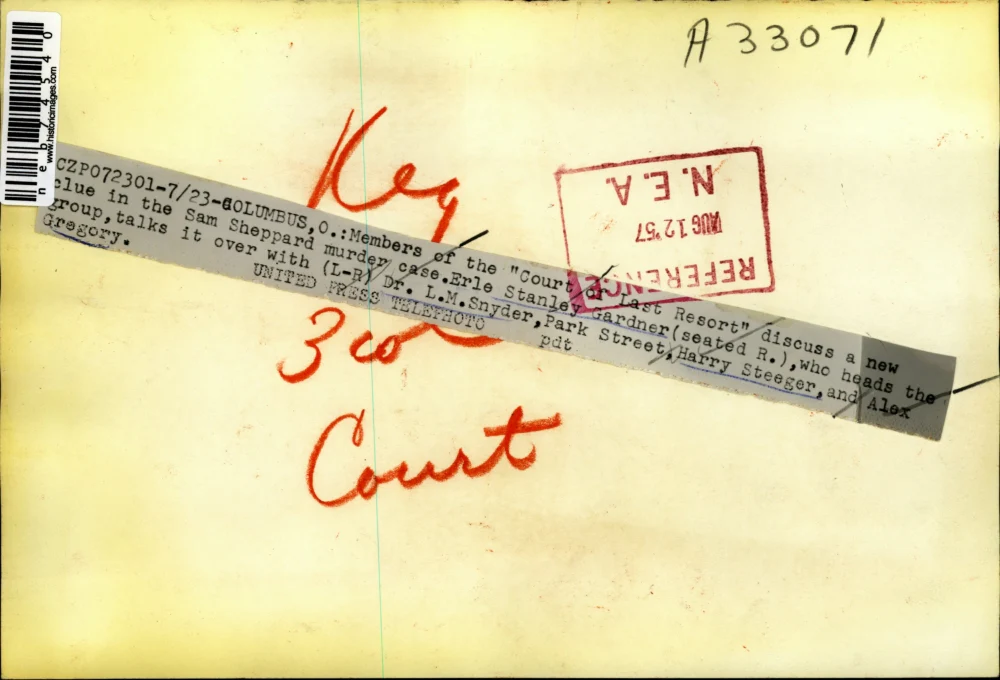 A33071
www.historicimages.com
neb74540
Key
N.E.A.
AUG 12 '57
REFERENCE
CZP072301-7/23-COLUMBUS,O.:Members of the "Court or Last Resort" discuss a new
clue in the Sam Sheppard murder case.Erle Stanley Gardner(seated R.),who heads the
group,talks it over with (L-R) Dr. L.M.Snyder,Park Street,Harry Steeger,and Alex
Gregory.
UNITED PRESS TELEPHOTO
pdt
3 col
Court